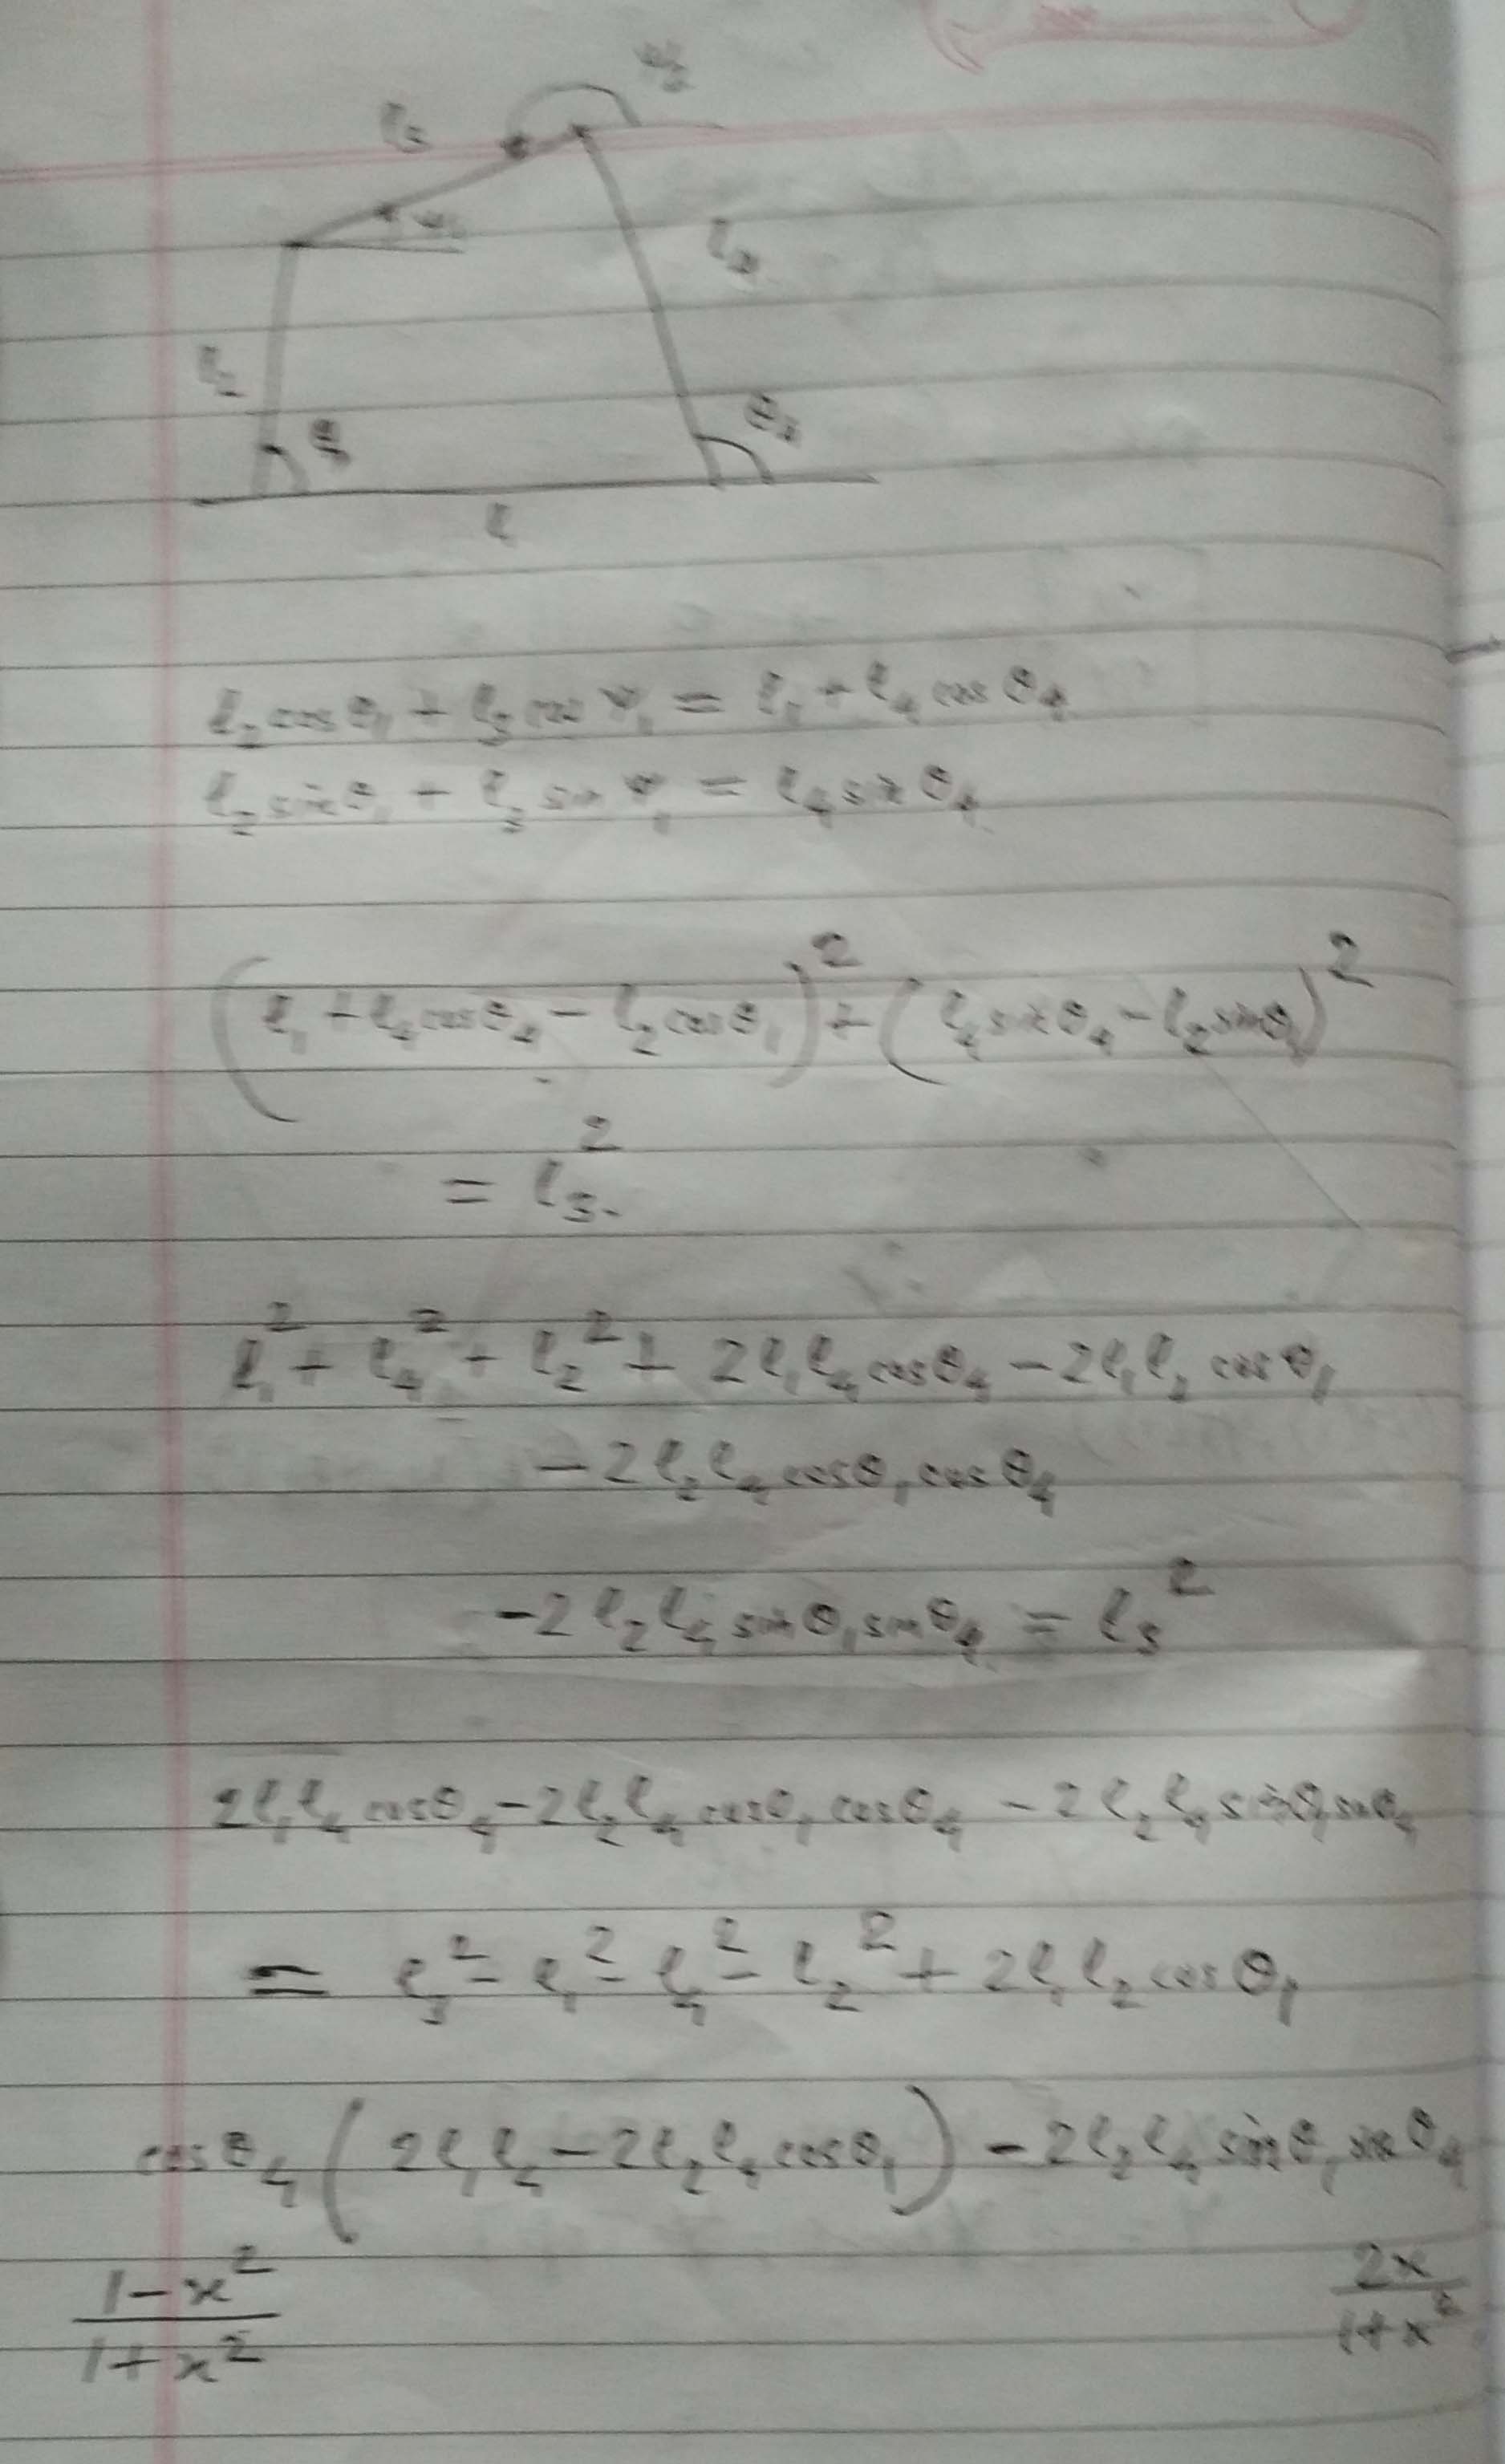 ψ₂
l₃
ψ₁
l₄
l₂
θ₁
θ₄
l
l₂ cosθ₁ + l₃ cos ψ₁ = l₁ + l₄ cos θ₄
l₂ sinθ₁ + l₃ sin ψ₁ = l₄ sin θ₄
(l₁ + l₄ cosθ₄ - l₂ cosθ₁)² + (l₄ sinθ₄ - l₂ sinθ₁)²
= l₃².
l₁² + l₄² + l₂² + 2l₁l₄ cosθ₄ - 2l₁l₂ cosθ₁
- 2l₂l₄ cosθ₁ cosθ₄
- 2l₂l₄ sinθ₁ sinθ₄ = l₃²
2l₁l₄ cosθ₄ - 2l₂l₄ cosθ₁ cosθ₄ - 2l₂l₄ sinθ₁ sinθ₄
= l₃² - l₁² - l₄² - l₂² + 2l₁l₂ cosθ₁
cosθ₄ (2l₁l₄ - 2l₂l₄ cosθ₁) - 2l₂l₄ sinθ₁ sinθ₄
1-x² 2x
1+x² 1+x²